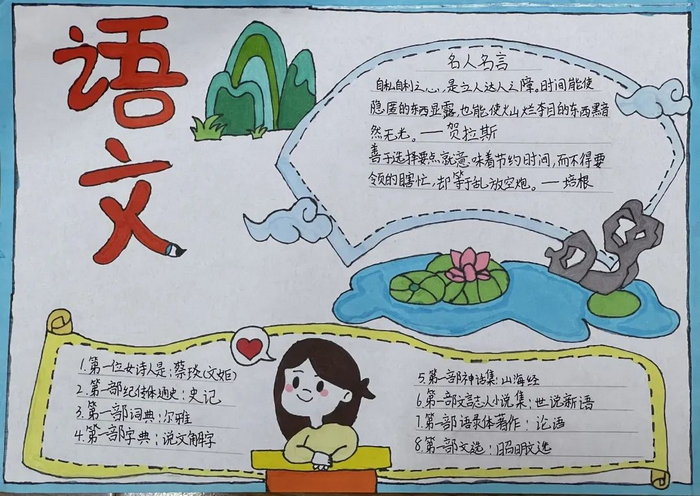 语文
名人名言
自私自利之心,是立人达人之障。时间能使
隐匿的东西显露,也能使灿烂夺目的东西黯
然无光。——贺拉斯
善于选择要点就意味着节约时间,而不得要
领的瞎忙,却等于乱放空炮。——培根
1.第一位女诗人是:蔡琰(文姬)
2.第一部纪传体通史:史记
3.第一部词典:尔雅
4.第一部字典:说文解字
5.第一部神话集:山海经
6.第一部文言志人小说集:世说新语
7.第一部语录体著作:论语
8.第一部文选:昭明文选